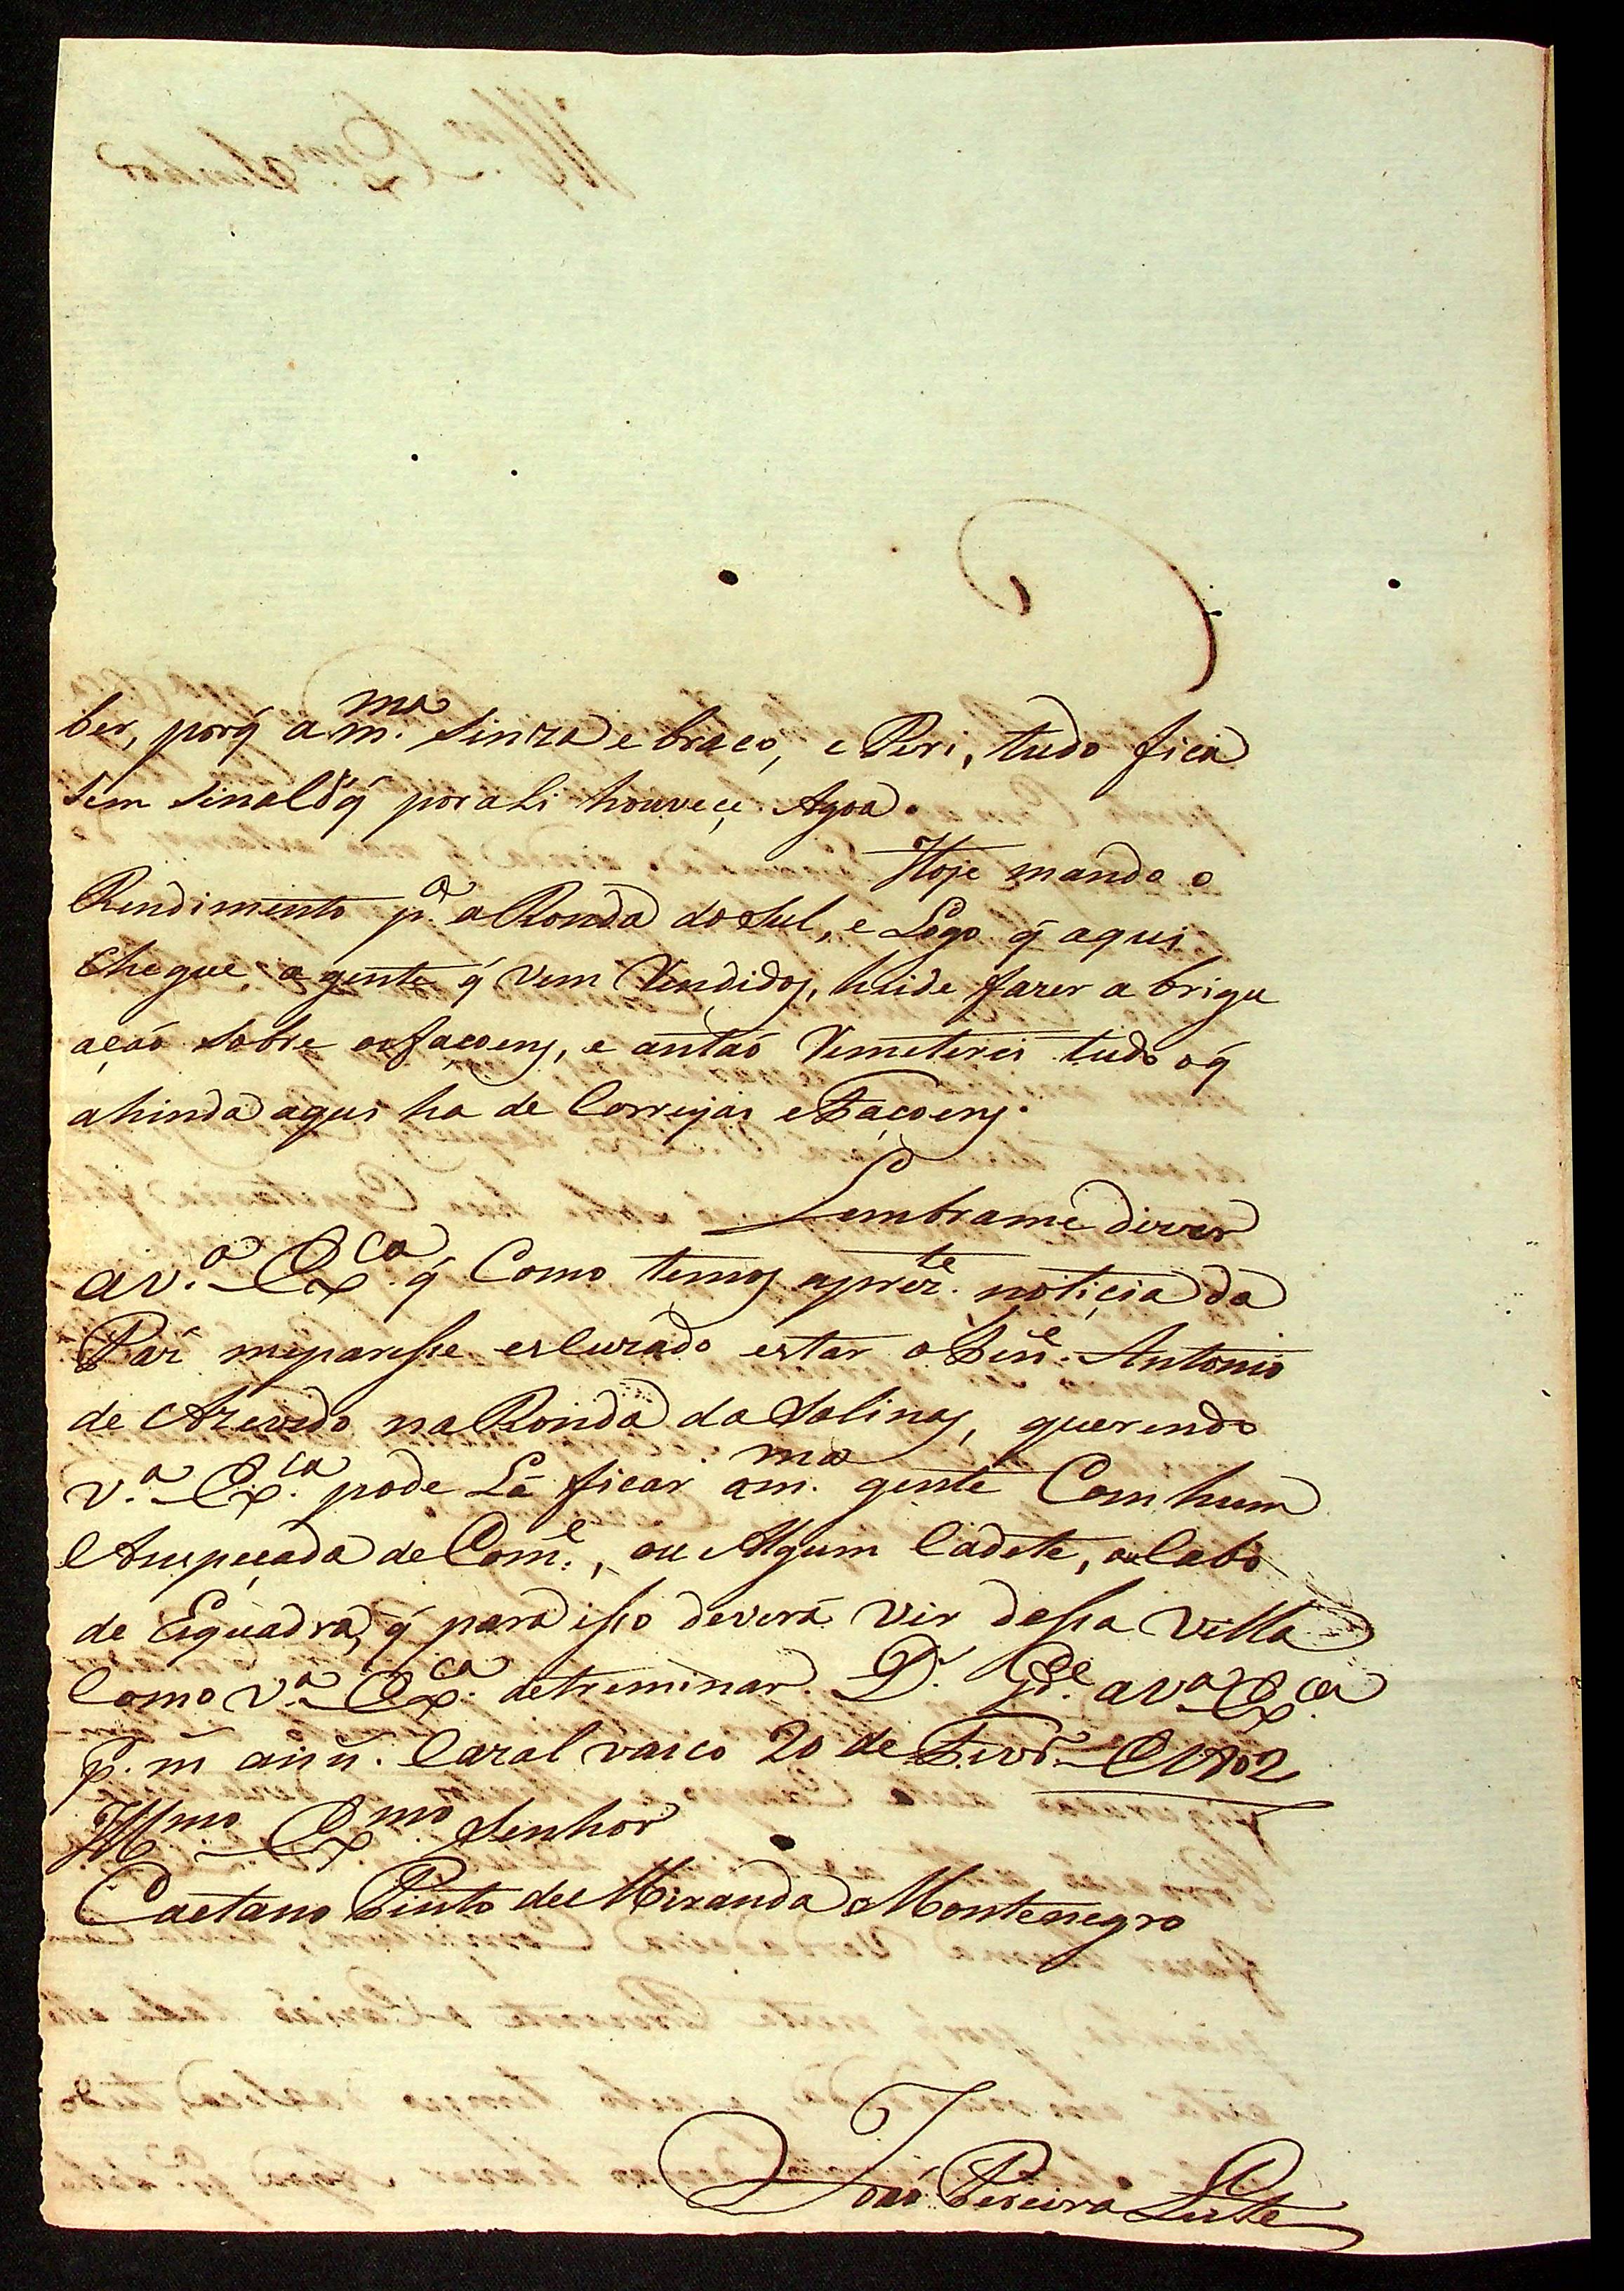 ber, porq̃ a m.ma Sinza e braço, e Peri, tudo fica
Sem Sinal dq̃ por ali houveçe Agoa.
Hoje mando o
Rendimento p.a a Ronda do Sul, e Logo q̃ aqui
chegue a gente q̃ vem Rendidos, heide fazer a brigu
ação Sobre os façoens, e antão Remeterei tudo oq̃
ahinda aqui ha de Correjas e Façoens.
Lembrame dizer
a V.a Ex.ca q̃ Como temos a prez.te notiçia da
Paz mepareſse escuzado estar o Furr.e Antonio
de Azevedo na Ronda da Salinas, querendo
V.a Ex.ca pode Lá ficar a m.ma gente Com hum
Anspeçada de Com.e, ou Algum Cadete, ou Cabo
de Esquadra, q̃ para iſso deverá vir deſsa Villa
Como V.a Ex.ca detreminar. D.s G.de a V.a Ex.ca
p. m̃ an̄n̄. Cazal vasco 20 de Fevr.o de 1802
Ill.mo Ex.mo Senhor
Caetano Pinto de Miranda Montenegro
João Pereira Leite